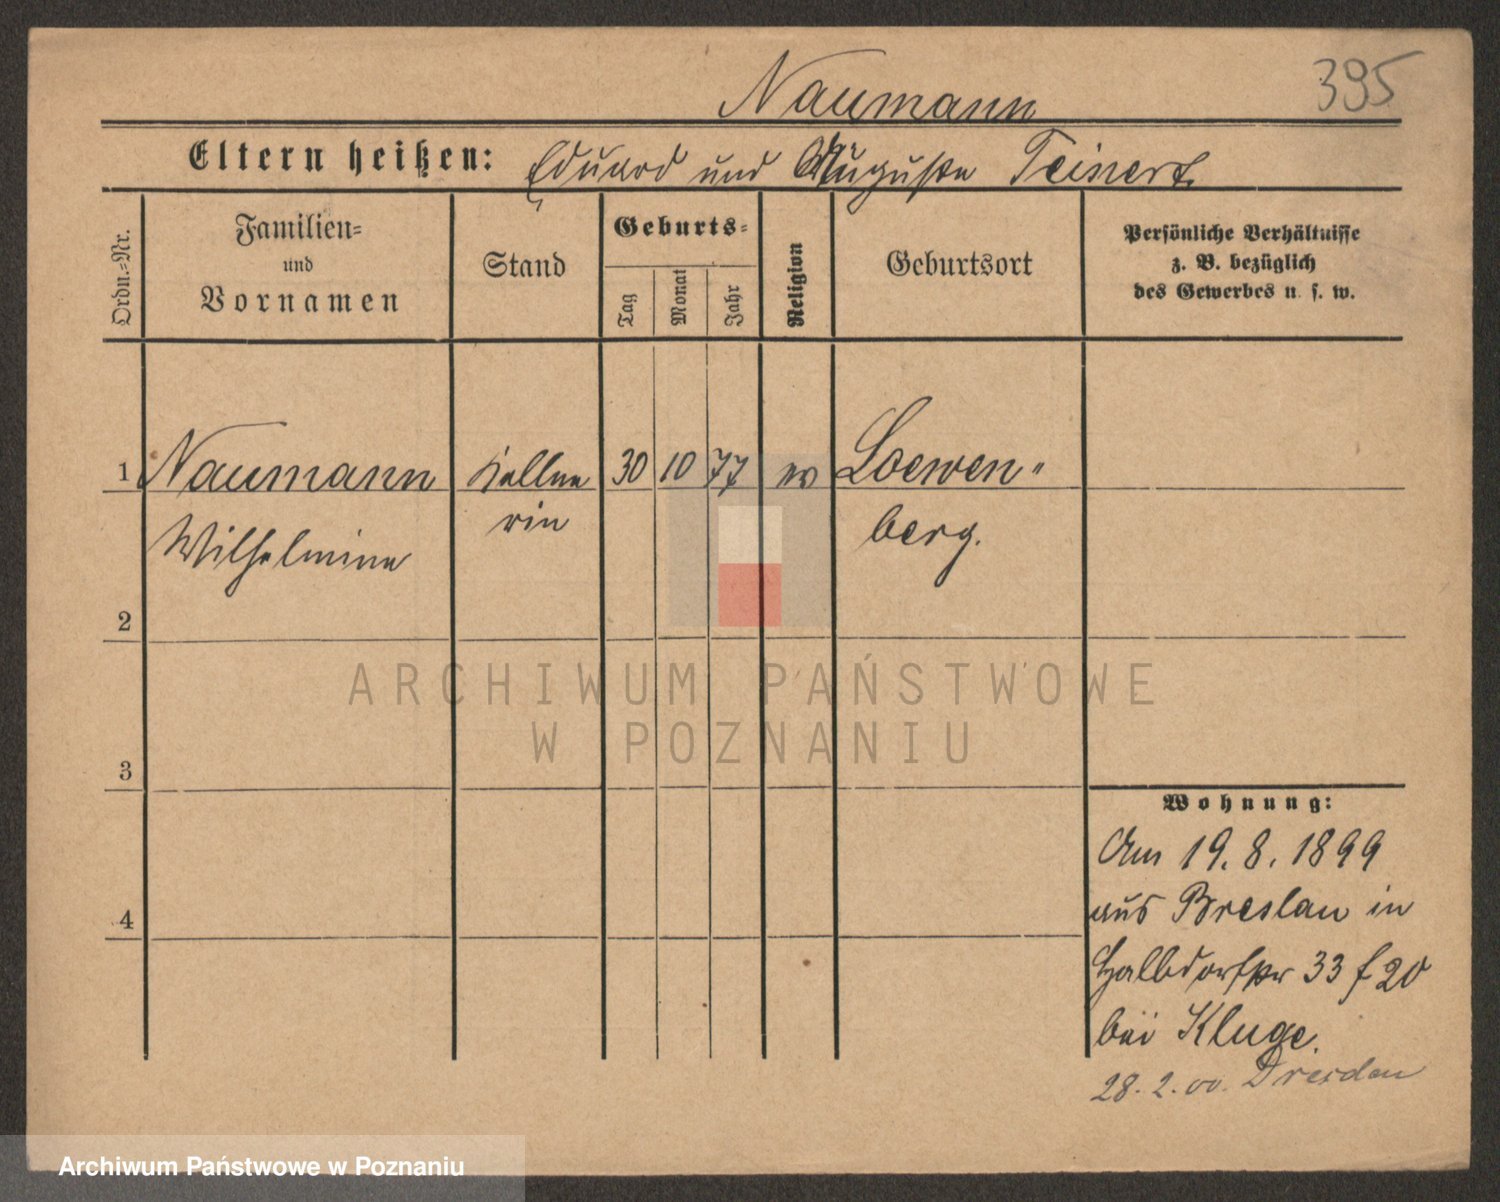 Naumann
395
Eltern heißen: Eduard und Auguste Teinert
Ordn.-Nr.
Familien-
und
Vornamen
Stand
Geburts-
Tag
Monat
Jahr
Religion
Geburtsort
Persönliche Verhältnisse
z. B. bezüglich
des Gewerbes u. s. w.
1 Naumann Kellne 30 10 77 ev Loewen"
Wilhelmine rin berg.
2
ARCHIWUM PAŃSTWOWE
W POZNANIU
3
Wohnung:
Am 19.8.1899
aus Breslau in
4
Halbdorfstr 33 f 20
bei Kluge.
28.2.00. Dresden
Archiwum Państwowe w Poznaniu